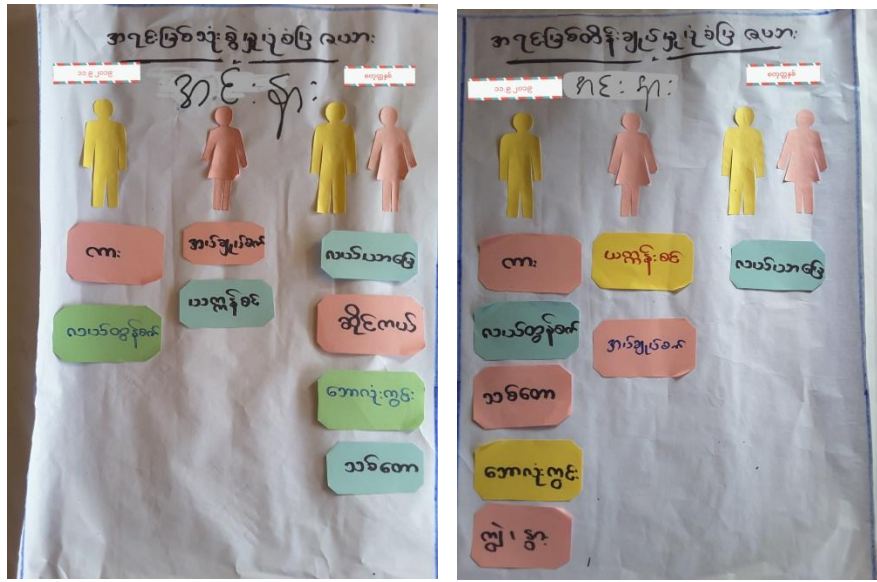 အရင်းမြစ်သုံးစွဲမှုပုံစံပြ ဇယား
၁၁.၉.၂၀၁၉
အင်းနား
စကုတ္တနစ်
ကား
အပ်ချုပ်စက်
လယ်ယာမြေ
လယ်ထွန်စက်
ယက္ကန်းစင်
ဆိုင်ကယ်
ဘောလုံးကွင်း
သစ်တော
အရင်းမြစ်ထိန်းချုပ်မှုပုံစံပြ ဇယား
၁၁.၉.၂၀၁၉
အင်းနား
စကုတ္တနစ်
ကား
ယက္ကန်းစင်
လယ်ယာမြေ
လယ်ထွန်စက်
အပ်ချုပ်စက်
သစ်တော
ဘောလုံးကွင်း
ကျွဲ၊ နွား